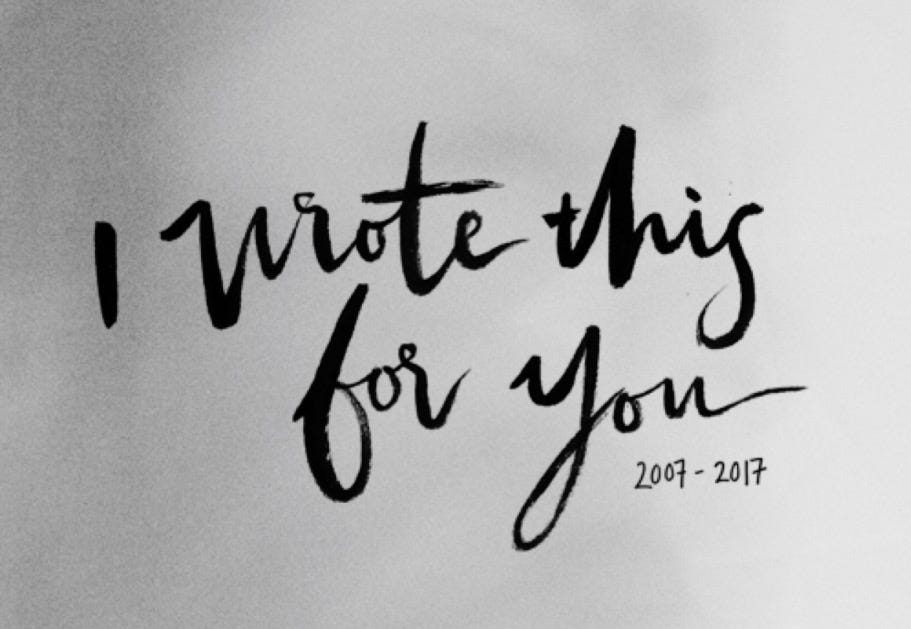 I wrote this
for you
2007 - 2017